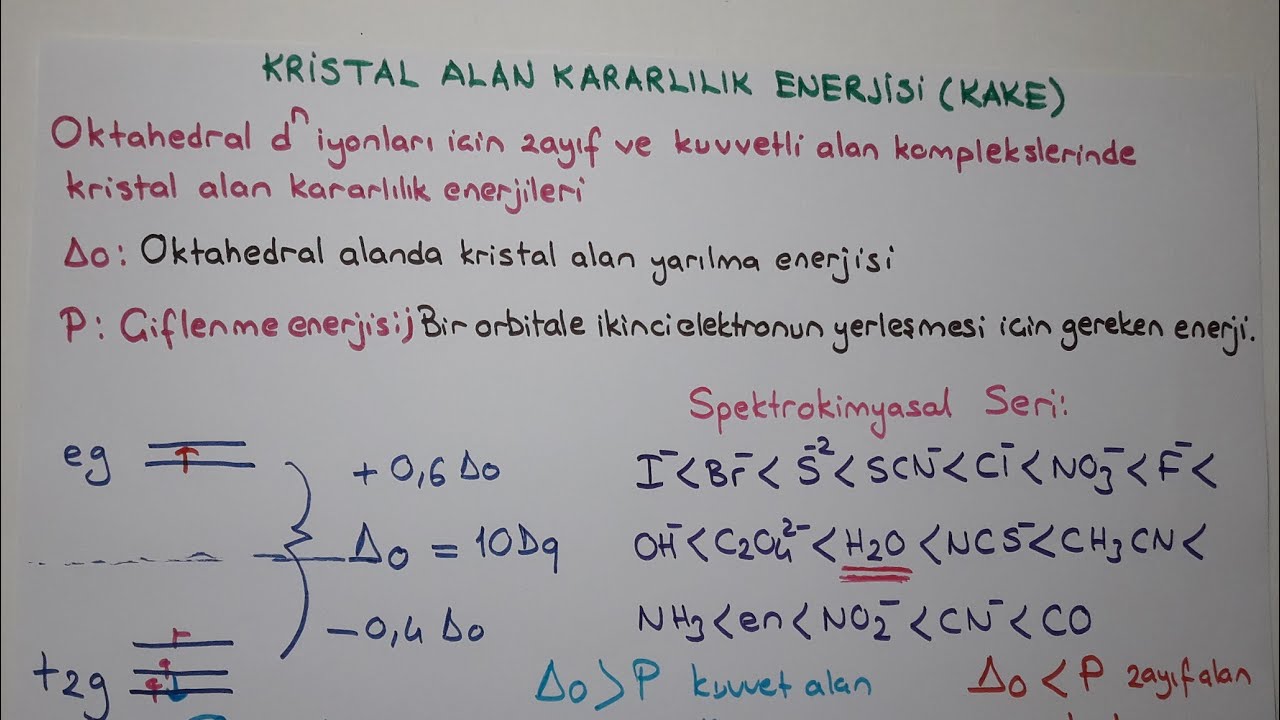 KRİSTAL ALAN KARARLILIK ENERJİSİ (KAKE)
Oktahedral dⁿ iyonları için zayıf ve kuvvetli alan komplekslerinde
kristal alan kararlılık enerjileri
Δo: Oktahedral alanda kristal alan yarılma enerjisi
P: Çiflenme enerjisi; Bir orbitale ikinci elektronun yerleşmesi için gereken enerji.
Spektrokimyasal Seri:
eg
+0,6 Δo
I⁻ < Br⁻ < S⁻² < SCN⁻ < Cl⁻ < NO₃⁻ < F⁻ <
Δo = 10Dq
OH⁻ < C₂O₄²⁻ < H₂O < NCS⁻ < CH₃CN <
-0,4 Δo
NH₃ < en < NO₂⁻ < CN⁻ < CO
t2g
Δo > P kuvvet alan
Δo < P zayıf alan